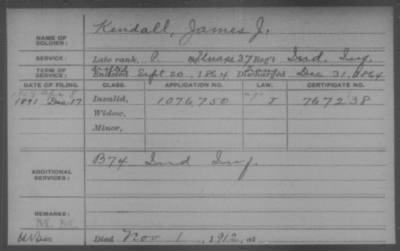 NAME OF SOLDIER: Kendall, James J.
SERVICE: Late rank, P. 37 Reg't Ind. Inf.
TERM OF SERVICE: Enlisted Sept 20, 1864 Discharged Dec 31, 1864
DATE OF FILING. CLASS. APPLICATION NO. LAW. CERTIFICATE NO.
1891 Dec 17 Invalid, 1,076,750 I 767238
Widow,
Minor,
ADDITIONAL SERVICES: B 74 Ind Inf
REMARKS:
Died Nov 1, 1912, at